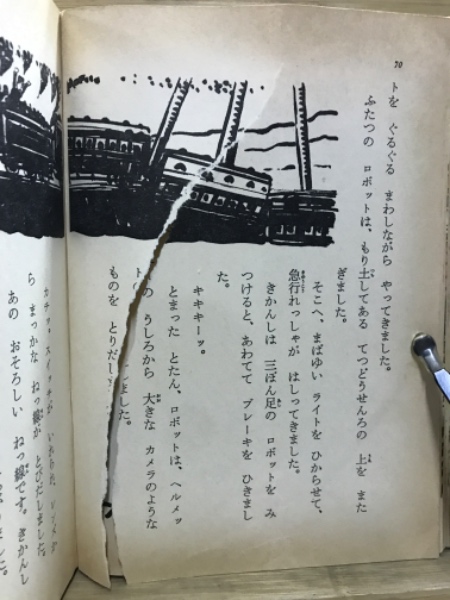 70
トを ぐるぐる まわしながら やってきました。
ふたつの ロボットは、もり土してある てつどうせんろの 上を また
ぎました。
そこへ、まばゆい ライトを ひからせて、
急行れっしゃが はしってきました。
きかんしは 三ぼん足の ロボットを み
つけると、あわてて ブレーキを ひきまし
た。
キキキーッ。
とまった とたん、ロボットは、ヘルメッ
の うしろから 大きな カメラのような
ものを とりだし ました。
カチッ、スイッチが いれられ、
ら まっかな ねっ線が とびだしました。
あの おそろしい ねっ線です。きかんし